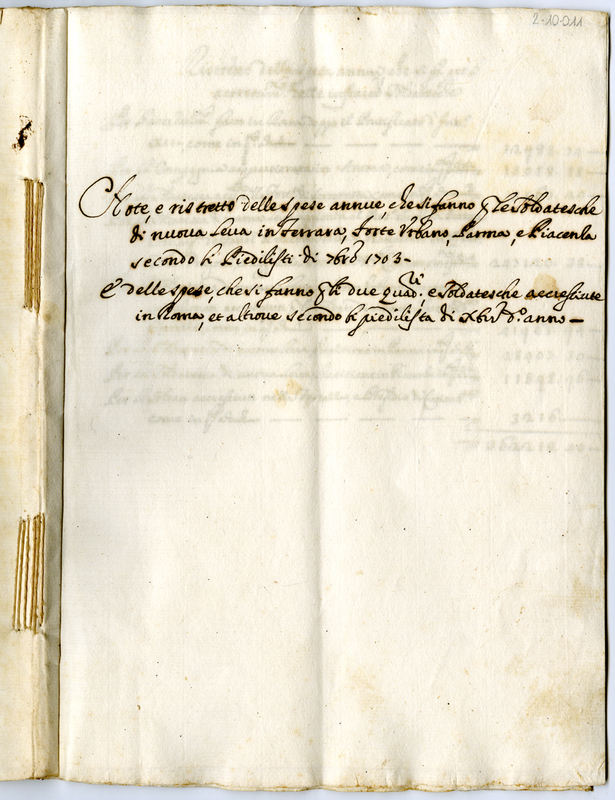 2-10-011
Note, e ristretto delle spese annue, che si fanno p le soldatesche
di nuova Leva in Ferrara, Forte Urbano, Parma, e Piacenza
secondo li Piedilisti di 7bre 1703-
E delle spese, che si fanno p li due quad.ti e soldatesche accresciute
in Roma, et altrove secondo li piedilista di Xbre d.o anno-